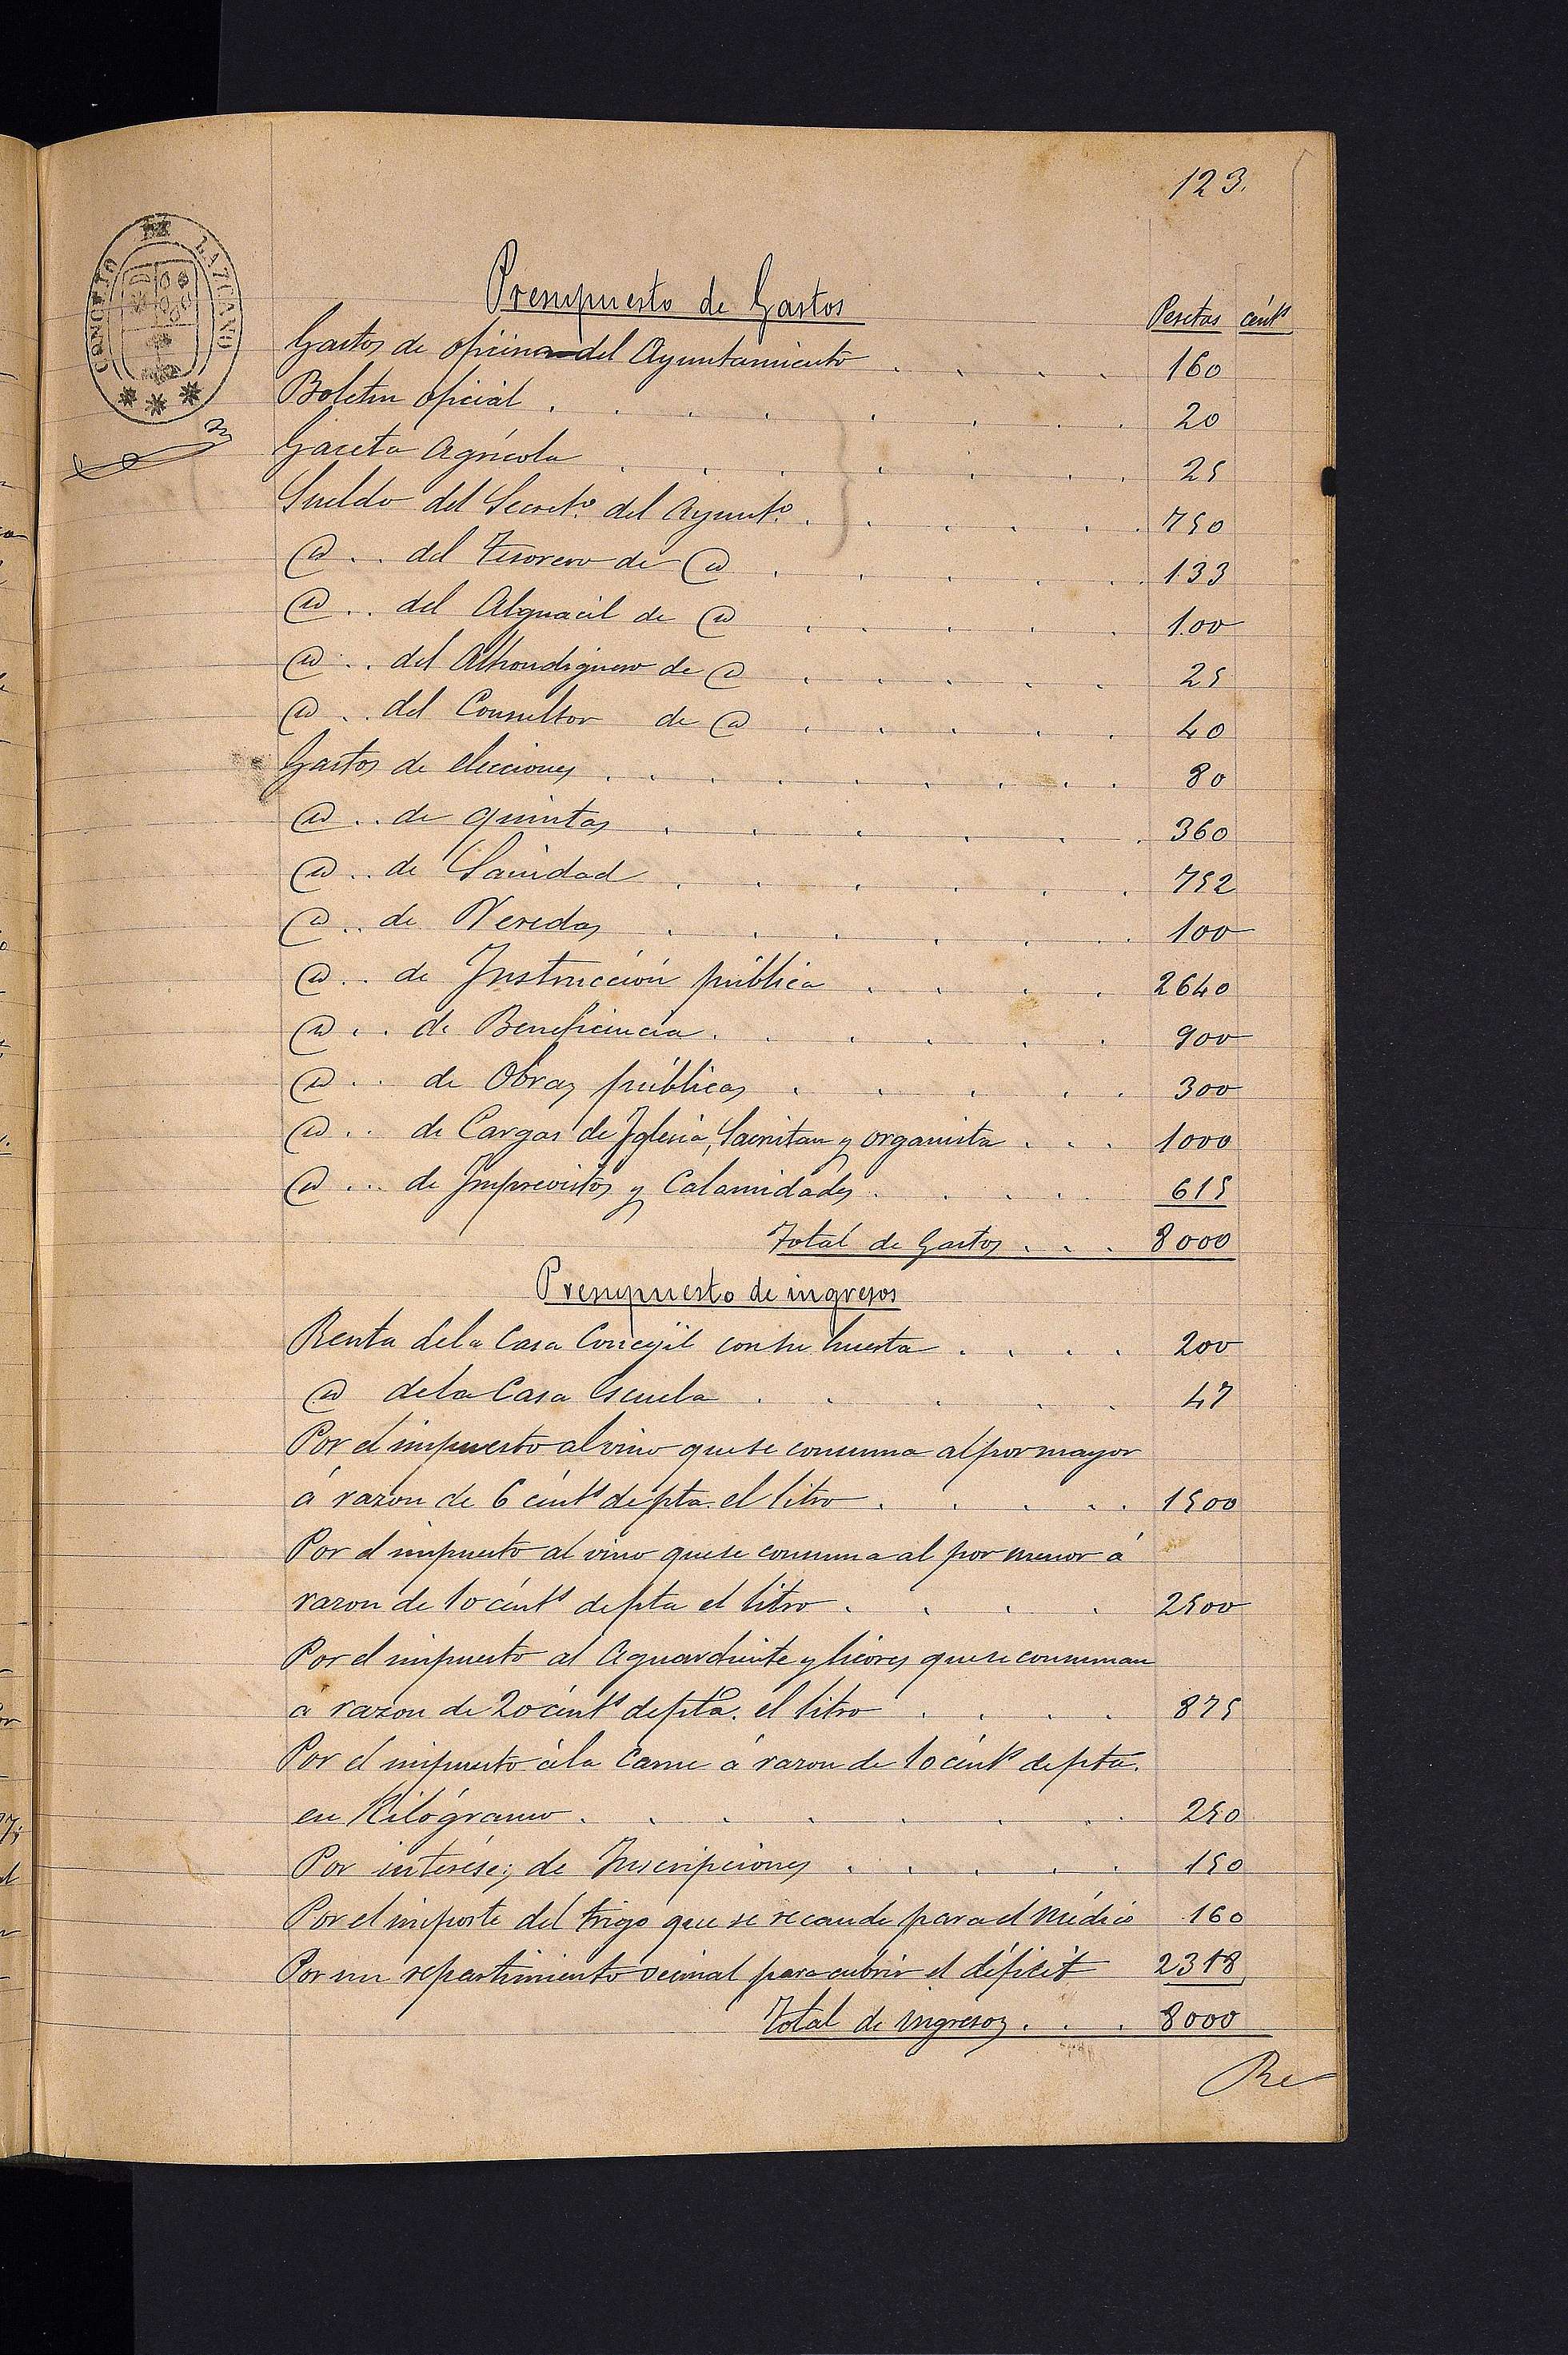 123.
CONCEJO DE LAZCANO
Presupuesto de Gastos
Pesetas cénts
Gastos de oficina del Ayuntamiento . . . . 160
Boletin oficial . . . . . . . 20
Gaceta Agrícola . . . . . . . 25
Sueldo del Secret.º del Ayunt.º . . . . . 750
@ . . del Tesorero de @ . . . . . 133
@ . . del Alguacil de @ . . . . . 100
@ . . del Alhondiguero de @ . . . . . 25
@ . . del Consultor de @ . . . . . 40
Gastos de elecciones . . . . . . . . 80
@ . . de quintas . . . . . . 360
@ . . de Sanidad . . . . . . 752
@ . . de Veredas . . . . . . 100
@ . . de Instrucción pública . . . . 2640
@ . . de Beneficencia . . . . . 900
@ . . de Obras públicas . . . . . 300
@ . . de Cargas de Iglesia, Sacristan y organista . . . 1000
@ . . de Imprevistos y Calamidades . . . . 615
Total de Gastos . . . 8000
Presupuesto de ingresos
Renta dela Casa Concejil con su huerta . . . . 200
@ dela Casa Escuela . . . . . 47
Por el impuesto al vino que se consuma al por mayor
á razon de 6 cénts de pta. el litro . . . . . 1500
Por el impuesto al vino que se consuma al por menor á
razon de 10 cénts de pta el litro . . . . 2500
Por el impuesto al Aguardiente y licores que se consuman
a razon de 20 cénts de pta. el litro . . . . 875
Por el impuesto á la Carne á razon de 10 cénts de pta.
en Kilógramo . . . . . . . 250
Por intereses de Inscripciones . . . . . 150
Por el importe del trigo que se recauda para el Médico 160
Por un repartimiento vecinal para cubrir el déficit 2318
Total de ingresos . . . 8000
Re